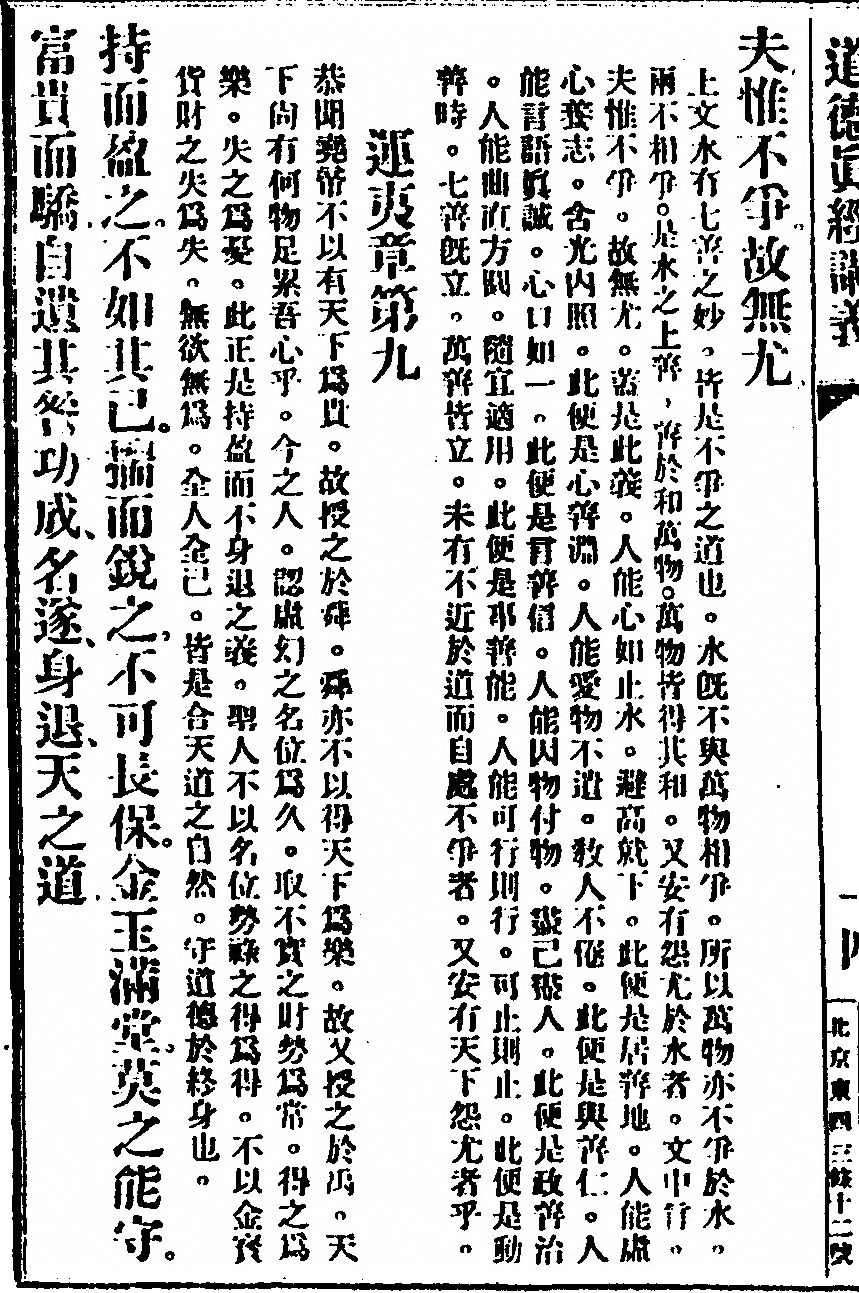 道德眞經講義
一四
北京東四三條十二號
夫惟不爭故無尤。
上文水有七善之妙。皆是不爭之道也。水旣不與萬物相爭。所以萬物亦不爭於水。
兩不相爭。是水之上善，善於和萬物。萬物皆得其和。又安有怨尤於水者。文中言。
夫惟不爭。故無尤。蓋是此義。人能心如止水。避高就下。此便是居善地。人能虛
心養志。含光內照。此便是心善淵。人能愛物不遺。敎人不倦。此便是與善仁。人
能言語眞誠。心口如一。此便是言善信。人能因物付物。盡己盡人。此便是政善治
。人能曲直方圓。隨宜適用。此便是事善能。人能可行則行。可止則止。此便是動
善時。七善旣立。萬善皆立。未有不近於道而自處不爭者。又安有天下怨尤者乎。
運夷章第九
恭聞堯帝不以有天下爲貴。故授之於舜。舜亦不以得天下爲樂。故又授之於禹。天
下尙有何物足累吾心乎。今之人。認虛幻之名位爲久。取不實之財勢爲常。得之爲
樂。失之爲憂。此正是持盈而不身退之義。聖人不以名位勢祿之得爲得。不以金寶
貨財之失爲失。無欲無爲。全人全己。皆是合天道之自然。守道德於終身也。
持而盈之。不如其已。揣而銳之，不可長保。金玉滿堂。莫之能守。
富貴而驕，自遺其咎。功成、名遂、身退、天之道